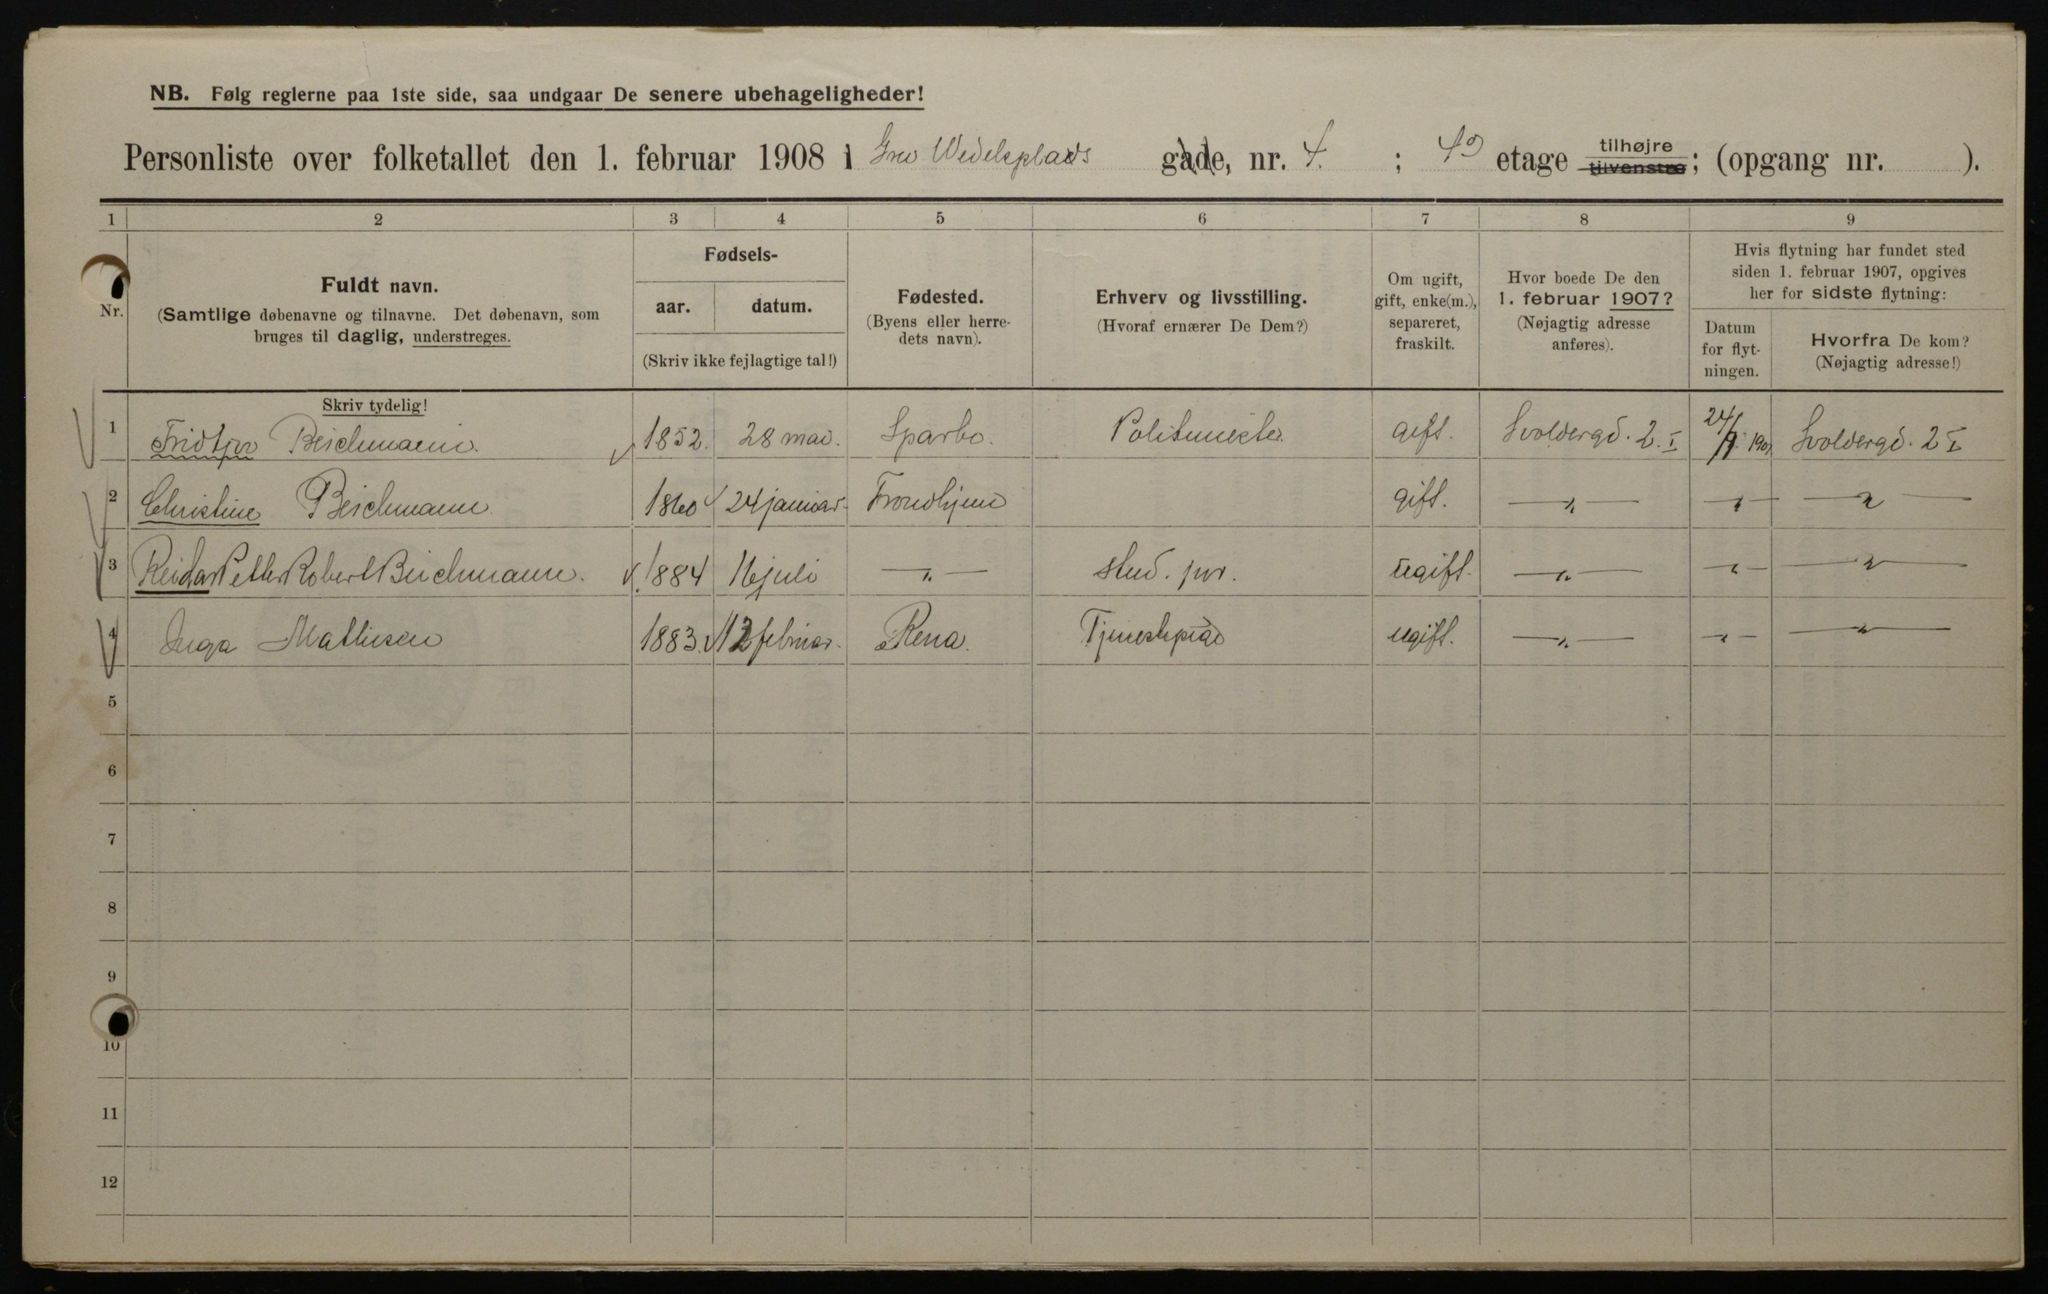 NB. Følg reglerne paa 1ste side, saa undgaar De senere ubehageligheder!
Personliste over folketallet den 1. februar 1908 i Grev Wedelsplads gade, nr. 4. ; 4de etage tilhøjre tilvenstre; (opgang nr. ).
1 2 3 4 5 6 7 8 9
Nr.
Fuldt navn.
(Samtlige døbenavne og tilnavne. Det døbenavn, som
bruges til daglig, understreges.
Skriv tydelig!
Fødsels-
aar. datum.
(Skriv ikke fejlagtige tal!)
Fødested.
(Byens eller herre-
dets navn).
Erhverv og livsstilling.
(Hvoraf ernærer De Dem?)
Om ugift,
gift, enke(m.),
separeret,
fraskilt.
Hvor boede De den
1. februar 1907?
(Nøjagtig adresse
anføres).
Hvis flytning har fundet sted
siden 1. februar 1907, opgives
her for sidste flytning:
Datum
for flyt-
ningen.
Hvorfra De kom?
(Nøjagtig adresse!)
1 Fridtjov Beichmann. 1852. 28 mai. Sparbo. Politimester. gift. Svoldergd. 2. I 24/9 1907 Svoldergd. 2 I
2 Christine Beichmann. 1860 24 januar. Trondhjem gift. — „ — — „ — — „ —
3 Reidar Petter Robert Beichmann. 1884 16 juli — „ — stud. jur. ugift. — „ — — „ — — „ —
4 Inga Mathiesen 1883. 12 februar. Rena. Tjenestepige ugift. — „ — — „ — — „ —
5
6
7
8
9
10
11
12